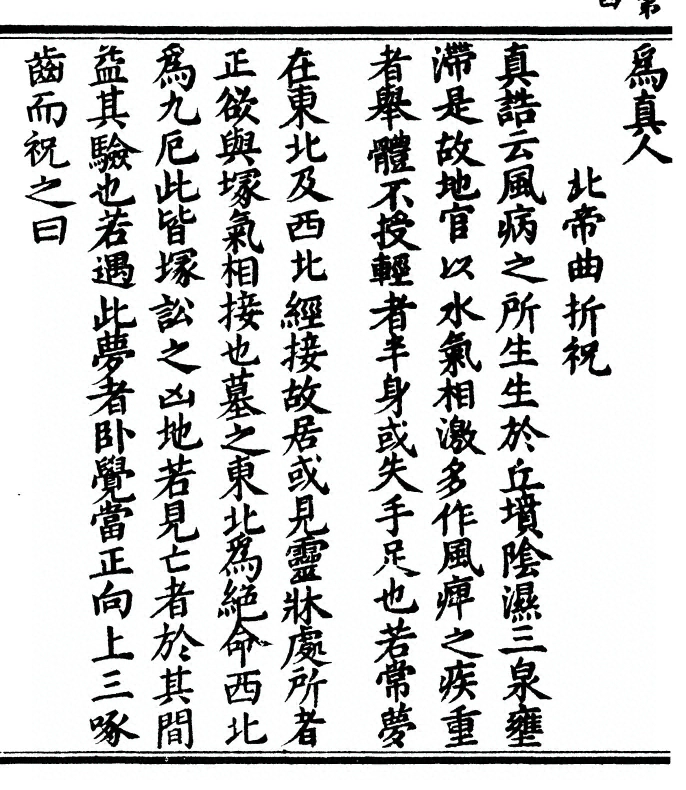 為真人
北帝曲折祝
真誥云風病之所生生於丘墳陰濕三泉壅
滯是故地官以水氣相激多作風痺之疾重
者舉體不授輕者半身或失手足也若常夢
在東北及西北經接故居或見靈牀處所者
正欲與塚氣相接也墓之東北為絕命西北
為九厄此皆塚訟之凶地若見亡者於其間
益其驗也若遇此夢者卧覺當正向上三啄
齒而祝之曰